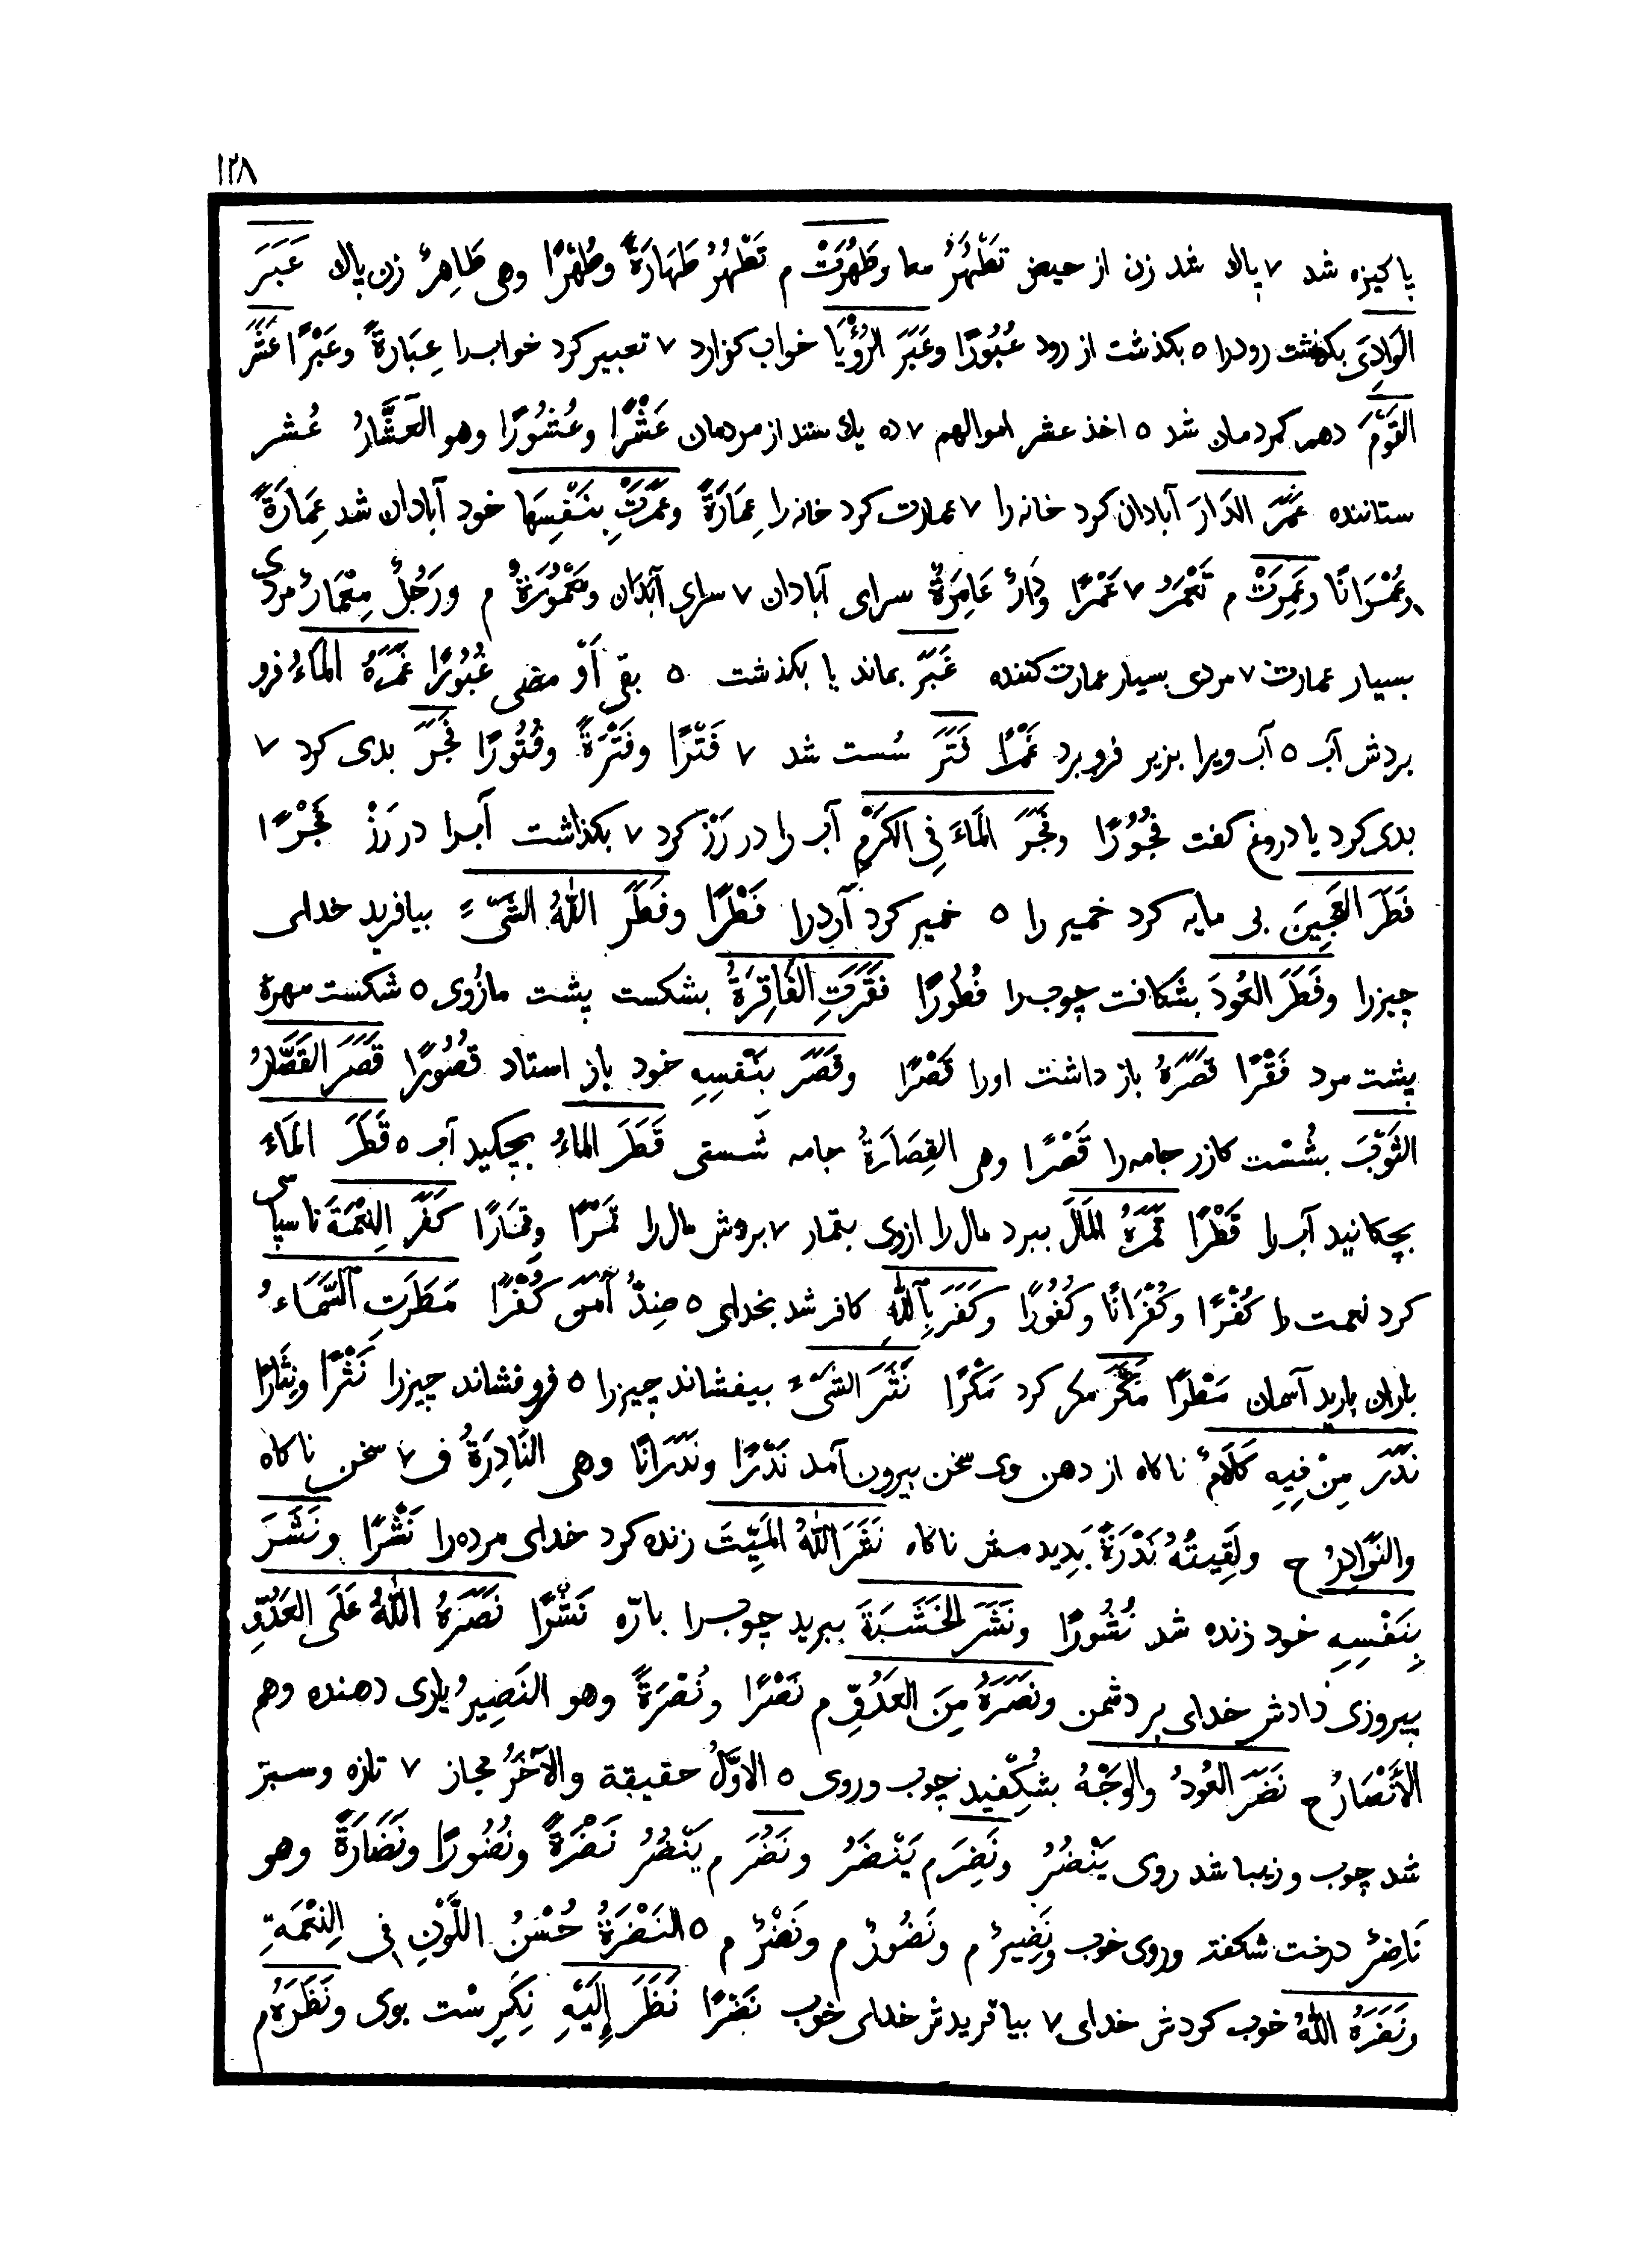 ١٢٨
پاکیزه شد ٧ پاك شد زن از حیض تَطْهُرُ معا وطَهُرَتْ م تَطْهُرُ طَهَارَةً وطُهْرًا وهی طَاهِرٌ زن پاك عَبَرَ
الوَادِيَ بکذشت رودرا ٥ بکذشت از رود عُبُورًا وعَبَرَ الرُؤْيَا خواب کزارد ٧ تعبیر کرد خوابرا عِبَارَةً وعَبْرًا عَشَرَ
القَوْمَ دهم کمردمان شد ٥ اخذ عشر اموالهم ٧ ده یك ستند از مردمان عَشْرًا وعُشُورًا وهو العَشَّارُ عُشر
ستاننده عَمَرَ الدَارَ آبادان کرد خانه را ٧ عمارت کرد خانه را عِمَارَةً وعَمَرَتْ بِنَفْسِهَا خود آبادان شد عِمَارَةً
وعُمْرَانًا وعَمِرَتْ م تَعْمَرُ ٧ عَمْرًا ودَارٌ عَامِرَةٌ سرای آبادان ٧ سرای آبادان ومَعْمُورَةٌ م ورَجُلٌ مِعْمَارٌ مردی
بسیار عمارت ٧ مردی بسیار عمارت کننده غَبَرَ بماند یا بکذشت ٥ بقی أَوْ مضی غُبُورًا غَمَرَهُ المَاءُ فرو
بردش آب ٥ آب ویرا بزیر فرو برد غَمْرًا فَتَرَ سُست شد ٧ فَتْرًا وفَتْرَةً وفُتُورًا فَجَرَ بدی کرد ٧
بدی کرد یا دروغ کفت فُجُورًا وفَجَرَ المَاءَ فِي الكَرْمِ آب را در رَزْ کرد ٧ بکذاشت آبرا در رَزْ فَجْرًا
فَطَرَ العَجِينَ بی مایه کرد خمیر را ٥ خمیر کرد آردرا فَطْرًا وفَطَرَ اللّٰهُ الشَيْءَ بیافرید خدای
چیزرا وفَطَرَ العُودَ بشکافت چوبرا فُطُورًا فَقَرَتِ الفَاقِرَةُ بشکست پشت مازُوی ٥ شکست مهرۀ
پشت مرد فَقْرًا قَصَرَهُ باز داشت اورا قَصْرًا وقَصَرَ بنَفْسِهِ خود باز استاد قُصُورًا قَصَرَ القَصَّارُ
الثَوْبَ بشُسْت کازر جامه را قَصْرًا وهی القِصَارَةُ جامه شُستی قَطَرَ الماءُ بچکید آب ٥ قَطَرَ المَاءَ
بچکانید آب را قَطْرًا قَمَرَهُ المَالَ ببرد مال را ازوی بقمار ٧ بردش مال را قَمْرًا وقِمَارًا كَفَرَ النِعْمَةَ ناسپاسی
کرد نعمت را كُفْرًا وكُفْرَانًا وكُفُورًا وكَفَرَ بِاللّٰهِ کافر شد بخدای ٥ ضِدُّ آمَنَ كُفْرًا مَطَرَتِ السَّمَاءُ
باران بارید آسمان مَطْرًا مَكَرَ مکر کرد مَكْرًا نَثَرَ الشَيْءَ بیفشاند چیزرا ٥ فرو فشاند چیزرا نَثْرًا ونِثَارًا
نَدَرَ مِنْ فِيهِ كَلَامٌ ناکاه از دهن وی سخن بیرون آمد نَدْرًا ونَدَرَانًا وهی النَادِرَةُ ف ٧ سخن ناکاه
والنَوَادِرُ ح ولَقِيتُهُ نَدْرَةً بَدیدمش ناکاه نَشَرَ اللّٰهُ المَيِّتَ زنده کرد خدای مرده را نَشْرًا ونَشَرَ
بِنَفْسِهِ خود زنده شد نُشُورًا ونَشَرَ الخَشَبَةَ ببرید چوبرا بارّه نَشْرًا نَصَرَهُ اللّٰهُ عَلَى العَدُوِّ
پیروزی دادش خدای بر دشمن ونَصَرَهُ مِنَ العَدُوِّ م نَصْرًا ونُصْرَةً وهو النَصِيرُ یاری دهنده وهم
الأَنْصَارُ ح نَضَرَ العُودُ والوَجْهُ بشِکُفید چوب وروی ٥ الاوَّلُ حقیقة والآخَرُ مجاز ٧ تازه وسبز
شد چوب وزیبا شد روی يَنْضُرُ ونَضِرَ م يَنْضَرُ ونَضُرَ م يَنْضُرُ نَضْرَةً ونُضُورًا ونَضَارَةً وهو
نَاضِرٌ درخت شکفته وروی خوب ونَضِيرٌ م ونَضُورٌ م ونَضْرٌ م ٥ النَضْرَةُ حُسْنُ اللَّوْنِ فی النِعْمَةِ
ونَضَرَهُ اللّٰهُ خوب کردش خدای ٧ بیافریدش خدای خوب نَضْرًا نَظَرَ إِلَيْهِ نِکَرِسْت بوی ونَظَرَهُ م